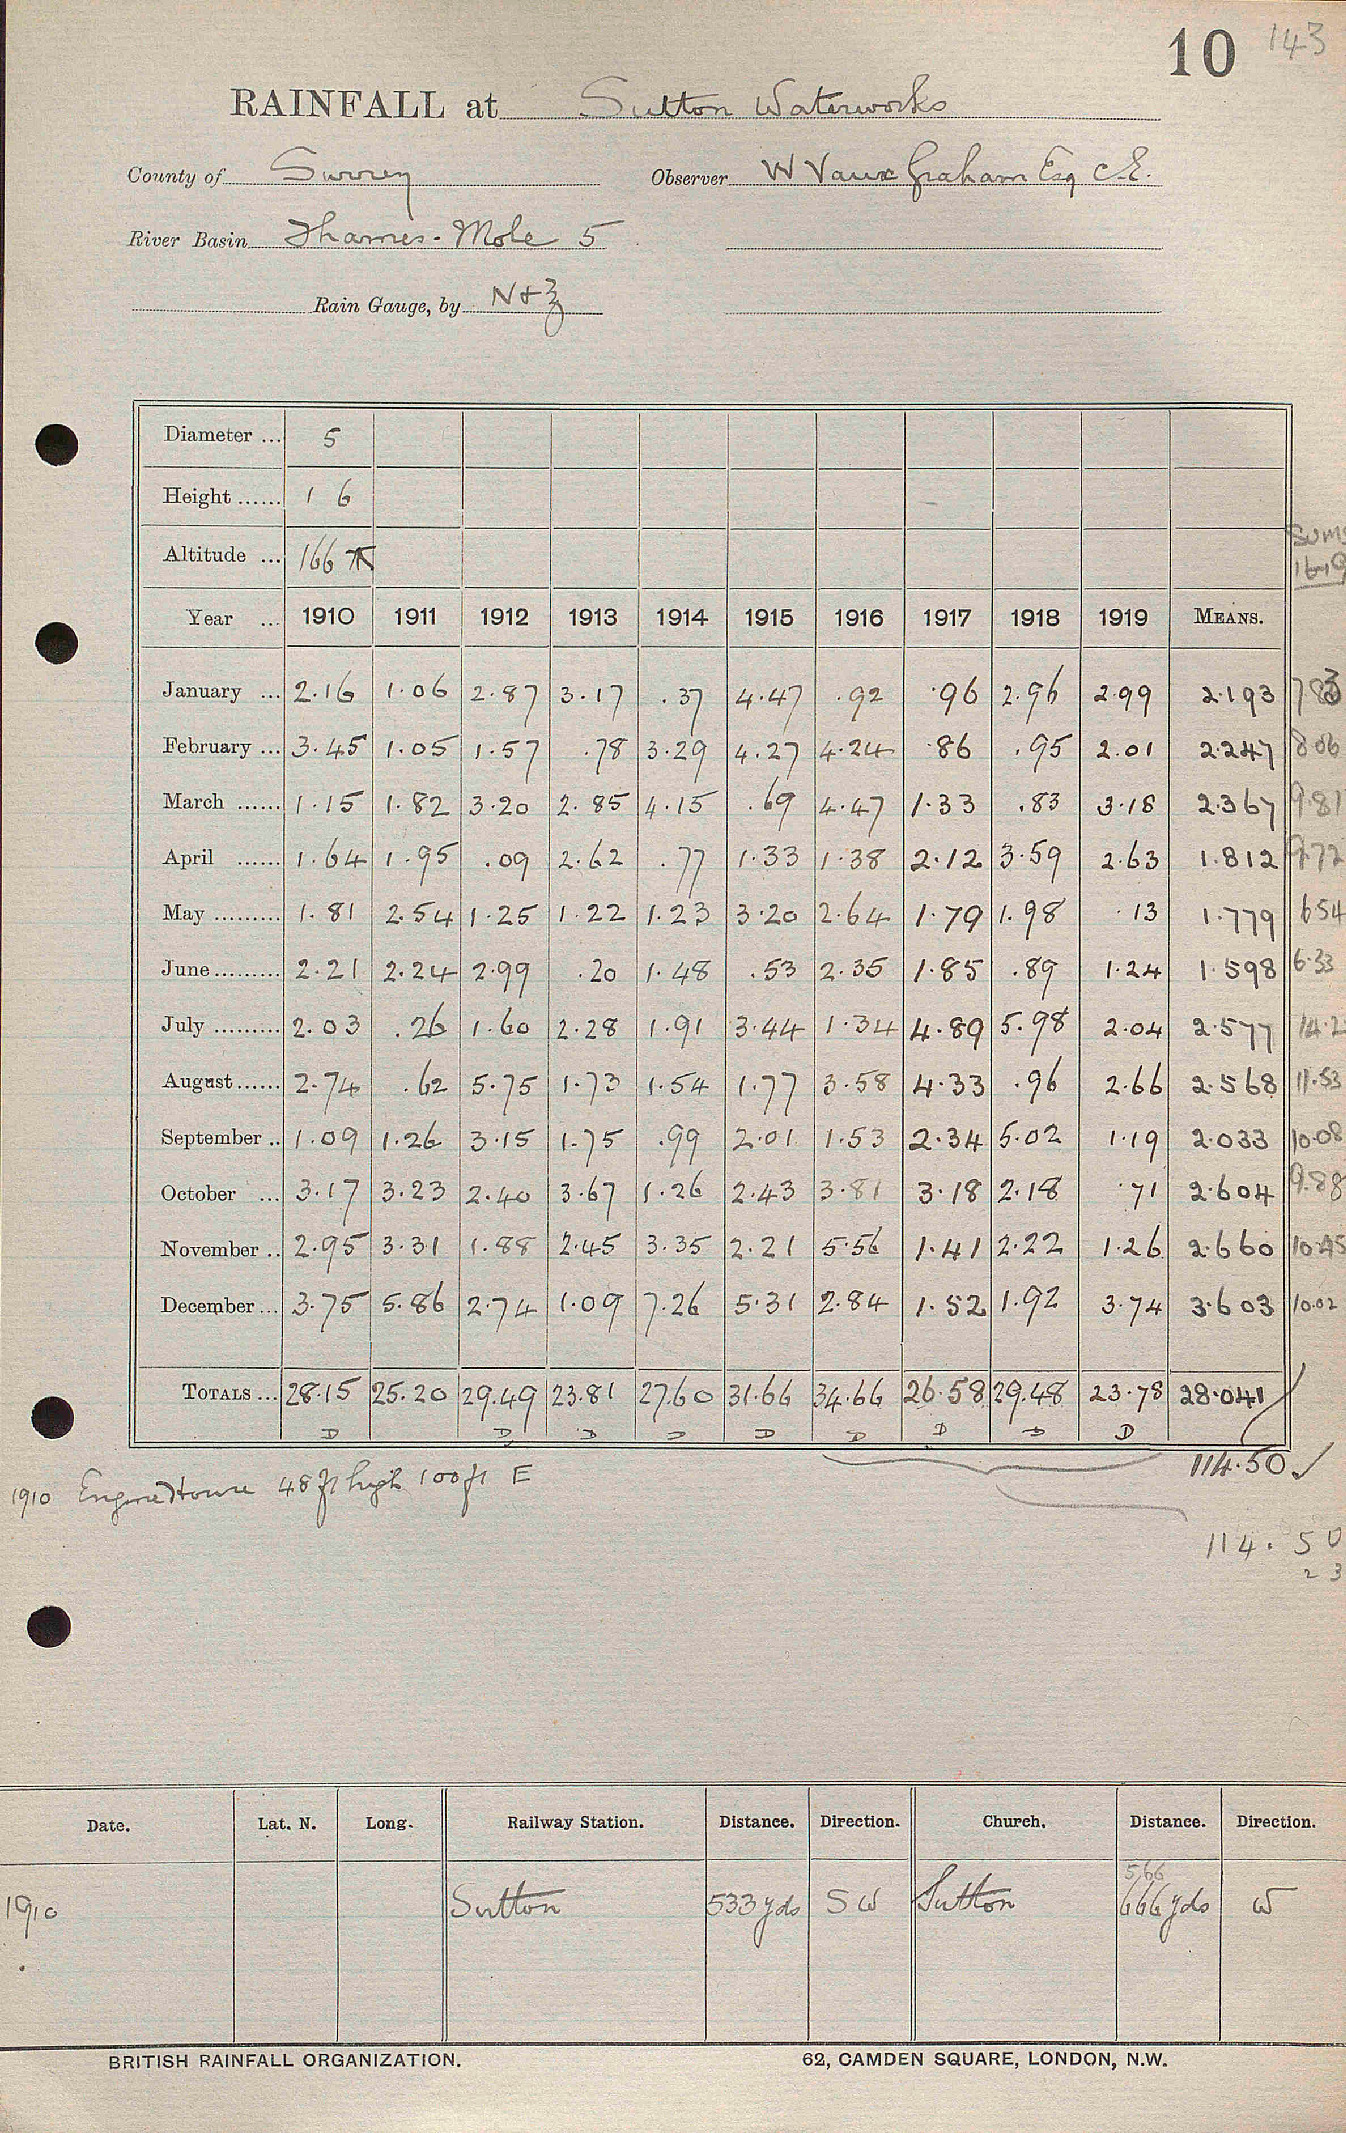 10 143
RAINFALL at Sutton Waterworks
County of Surrey Observer W Vaux Graham Esq C.E.
River Basin Thames - Mole 5
Rain Gauge, by N + Z
Diameter ... 5
Height ...... 1 6
Sums
Altitude ... 166
16-19
Year ... 1910 1911 1912 1913 1914 1915 1916 1917 1918 1919 MEANS.
January ... 2.16 1.06 2.87 3.17 .37 4.47 .92 .96 2.96 2.99 2.193 7.83
February ... 3.45 1.05 1.57 .78 3.29 4.27 4.24 .86 .95 2.01 2.247 8.06
March ...... 1.15 1.82 3.20 2.85 4.15 .69 4.47 1.33 .83 3.18 2.367 9.81
April ...... 1.64 1.95 .09 2.62 .77 1.33 1.38 2.12 3.59 2.63 1.812 9.72
May ......... 1.81 2.54 1.25 1.22 1.23 3.20 2.64 1.79 1.98 .13 1.779 6.54
June ......... 2.21 2.24 2.99 .20 1.48 .53 2.35 1.85 .89 1.24 1.598 6.33
July ......... 2.03 .26 1.60 2.28 1.91 3.44 1.34 4.89 5.98 2.04 2.577 14.2
August ...... 2.74 .62 5.75 1.73 1.54 1.77 3.58 4.33 .96 2.66 2.568 11.53
September .. 1.09 1.26 3.15 1.75 .99 2.01 1.53 2.34 5.02 1.19 2.033 10.08
October ... 3.17 3.23 2.40 3.67 1.26 2.43 3.81 3.18 2.18 .71 2.604 9.88
November .. 2.95 3.31 1.88 2.45 3.35 2.21 5.56 1.41 2.22 1.26 2.660 10.45
December ... 3.75 5.86 2.74 1.09 7.26 5.31 2.84 1.52 1.92 3.74 3.603 10.02
TOTALS ... 28.15 25.20 29.49 23.81 27.60 31.66 34.66 26.58 29.48 23.78 28.041
D D D D D D D D D
114.50 ✓
1910 Engine House 48 ft high 100 ft E
114.50
2 3
Date. Lat. N. Long. Railway Station. Distance. Direction. Church. Distance. Direction.
566
1910 Sutton 533 yds SW Sutton 666 yds W
BRITISH RAINFALL ORGANIZATION. 62, CAMDEN SQUARE, LONDON, N.W.